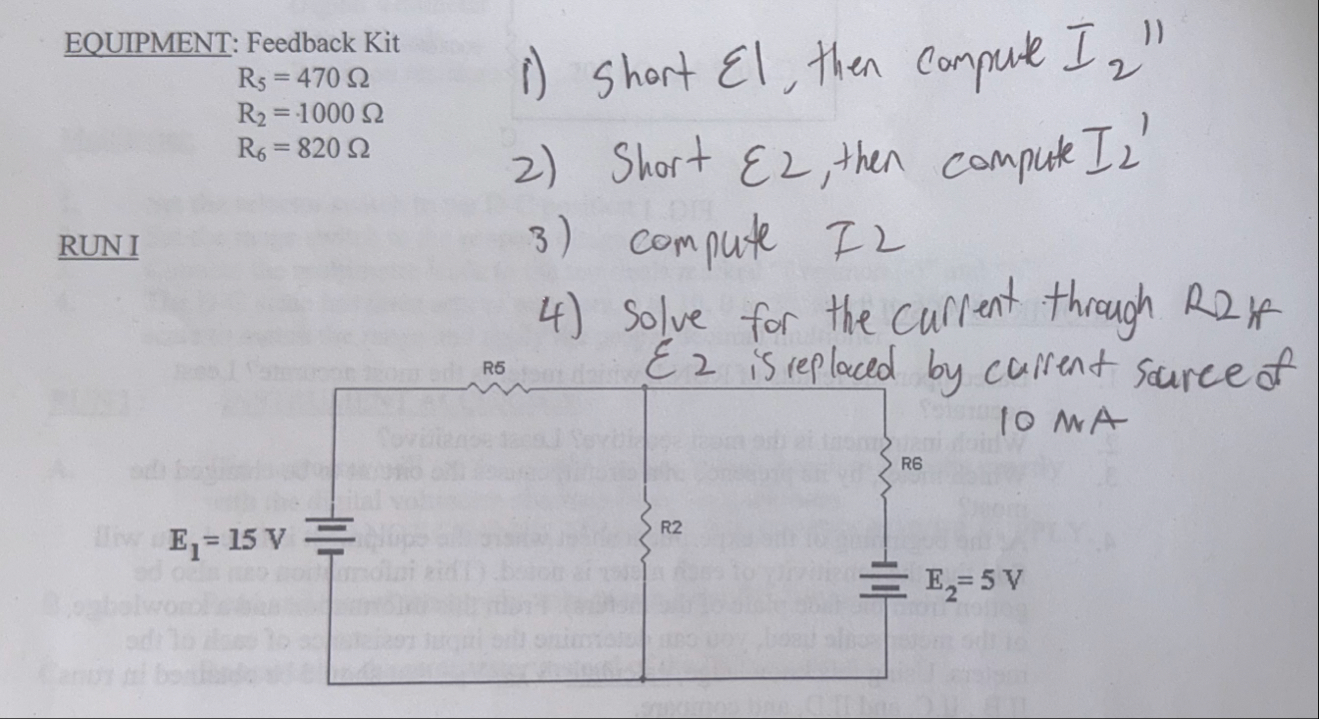 EQUIPMENT: Feedback Kit
R5 = 470 Ω
R2 = 1000 Ω
R6 = 820 Ω
1) Short ε1, then compute I2''
2) Short ε2, then compute I2'
RUN I
3) compute I2
4) solve for the current through R2 if
ε2 is replaced by current source of
10 mA
R5
R6
R2
E1 = 15 V
E2 = 5 V